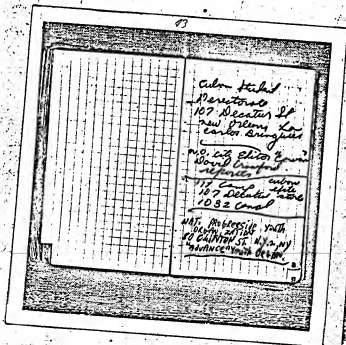 93
Cuban Student
Directorate
107 Decatur St
New Orleans, La
Carlos Bringuier
N.O. City Editor
David Crawford
reporter
117 Camp
107 Decatur
1032 Canal
cuban
store
NAT. PROGRESSIVE YOUTH
ORGANIZATION
80 CLINTON ST. N.Y. 2, NY
"ADVANCE" YOUTH ORGAN.